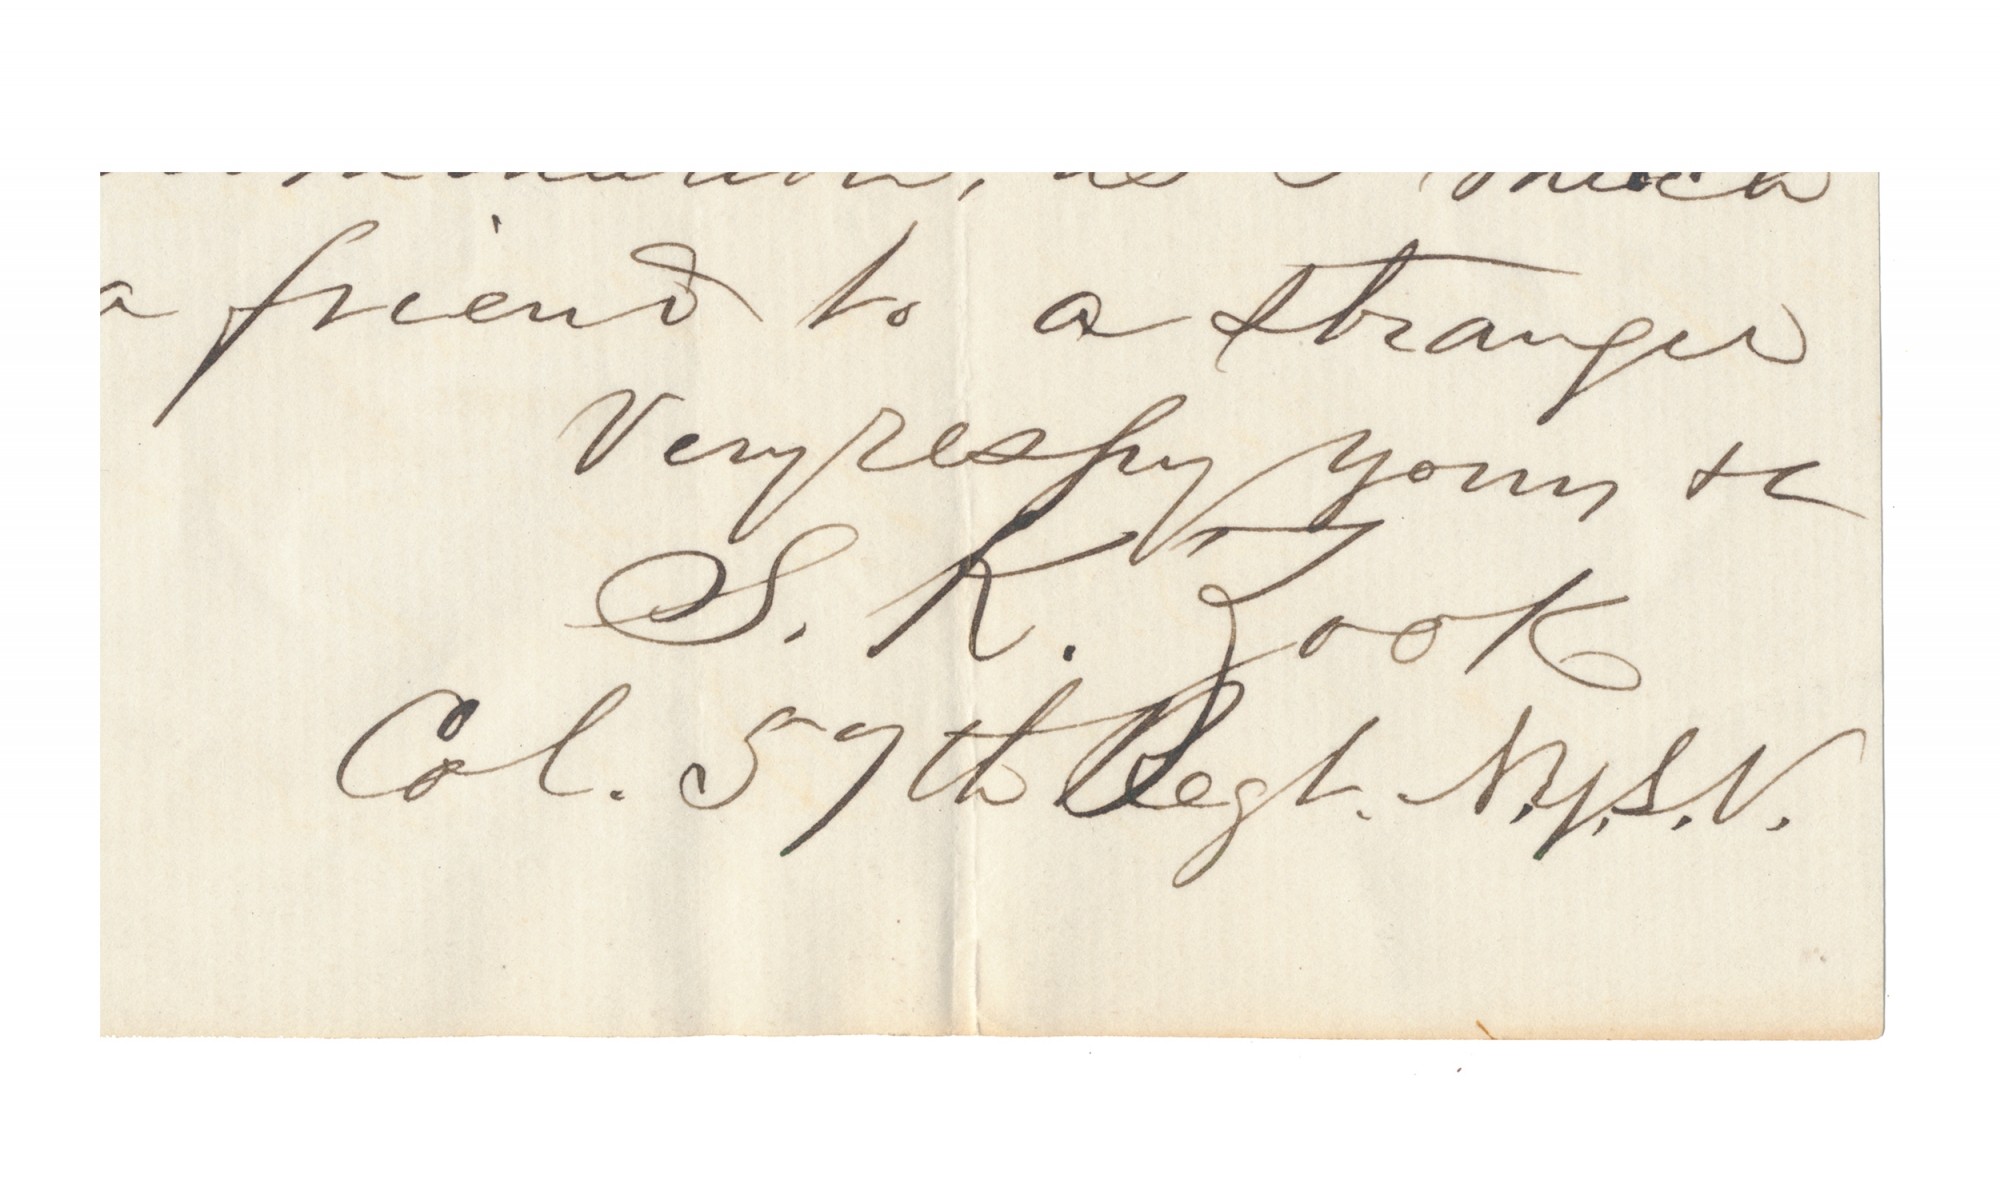 as I much
a friend to a stranger
Very respy yours &c
S. K. Zook
Col. 57th Regt. N.Y.S.V.